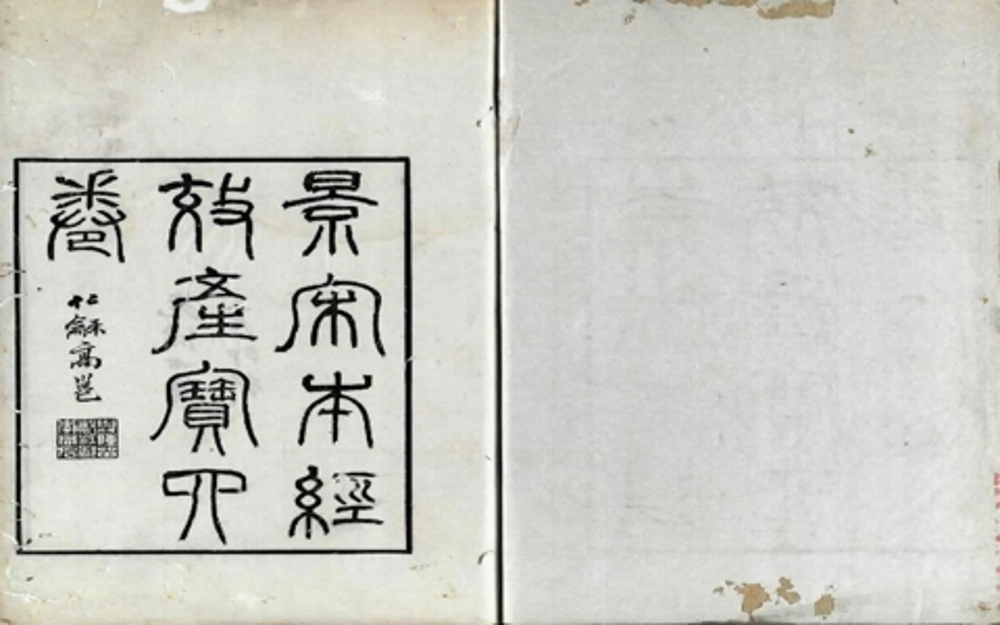 景宋本經
效產寶四
卷
仁龢高邕